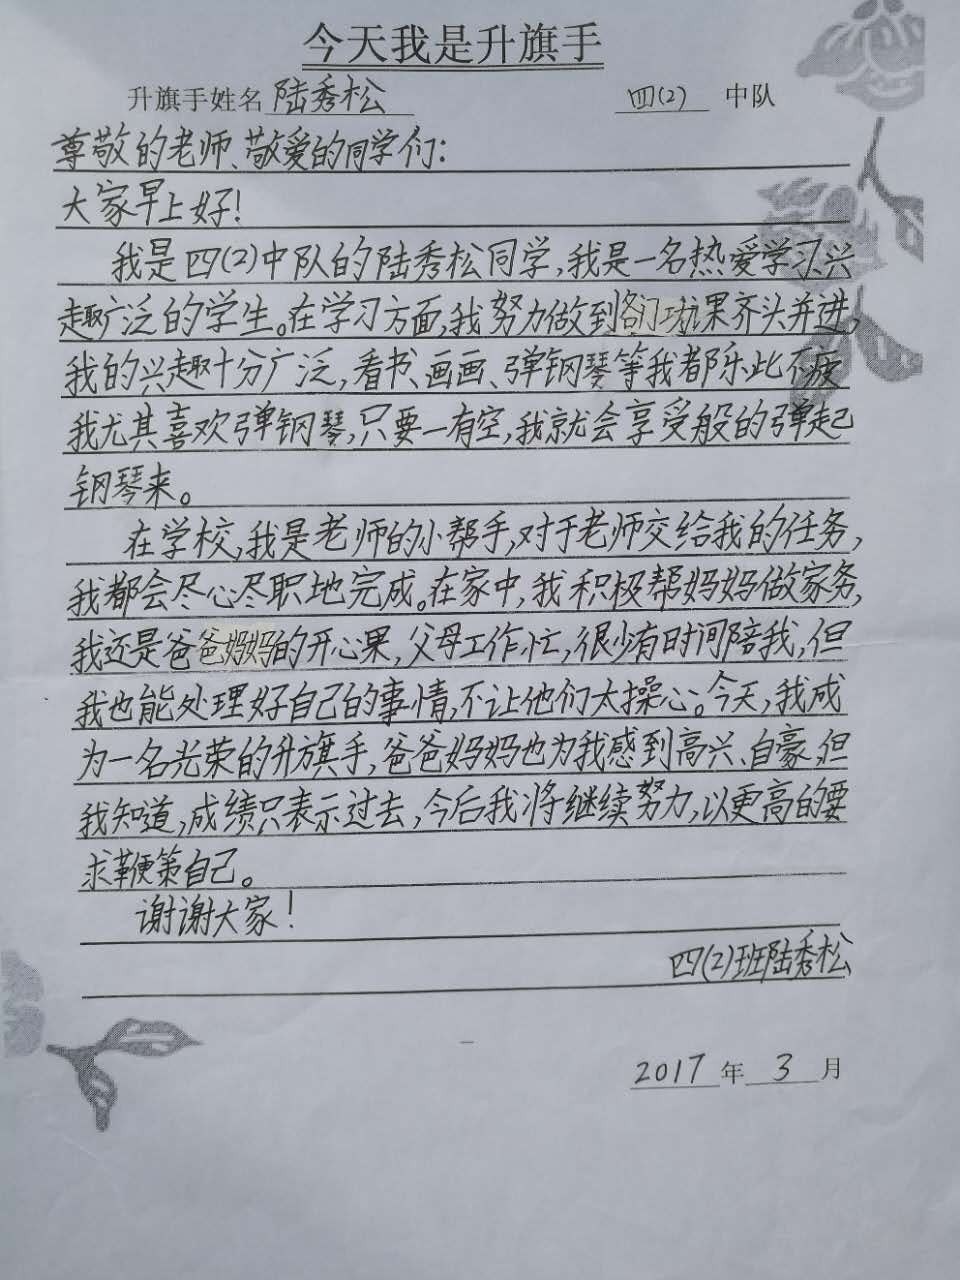 今天我是升旗手
升旗手姓名 陆秀松 四(2) 中队
尊敬的老师、敬爱的同学们:
大家早上好!
我是四(2)中队的陆秀松同学,我是一名热爱学习、兴
趣广泛的学生。在学习方面,我努力做到各门功课齐头并进,
我的兴趣十分广泛,看书、画画、弹钢琴等我都乐此不疲
我尤其喜欢弹钢琴,只要一有空,我就会享受般的弹起
钢琴来。
在学校,我是老师的小帮手,对于老师交给我的任务,
我都会尽心尽职地完成。在家中,我积极帮妈妈做家务,
我还是爸爸妈妈的开心果,父母工作忙,很少有时间陪我,但
我也能处理好自己的事情,不让他们太操心。今天,我成
为一名光荣的升旗手,爸爸妈妈也为我感到高兴、自豪,但
我知道,成绩只表示过去,今后我将继续努力,以更高的要
求鞭策自己。
谢谢大家!
四(2)班陆秀松
2017 年 3 月